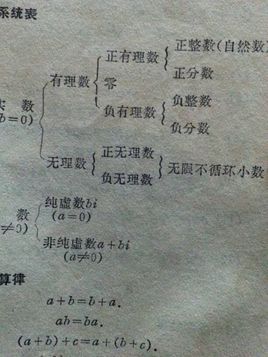 系统表
正整数(自然数)
正有理数
正分数
有理数
零
负整数
负有理数
负分数
实数
(b=0)
正无理数
无理数
无限不循环小数
负无理数
纯虚数bi
(a=0)
数
≠0)
非纯虚数a+bi
(a≠0)
算律
a+b=b+a.
ab=ba.
(a+b)+c=a+(b+c).